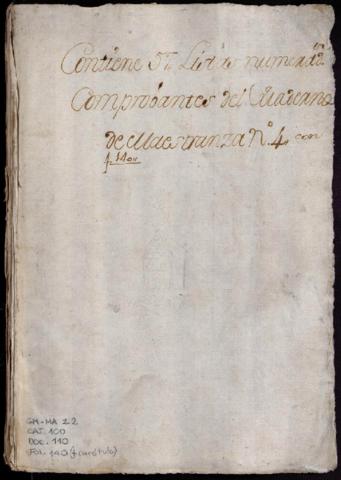 Contiene 57 Listas numerads
Comprobantes del Cuaderno
de Maestranza N.º 4 con
f. 140v
GM-MA 22
CAJ. 100
DOC. 110
FOL. 140 (+ carátula)